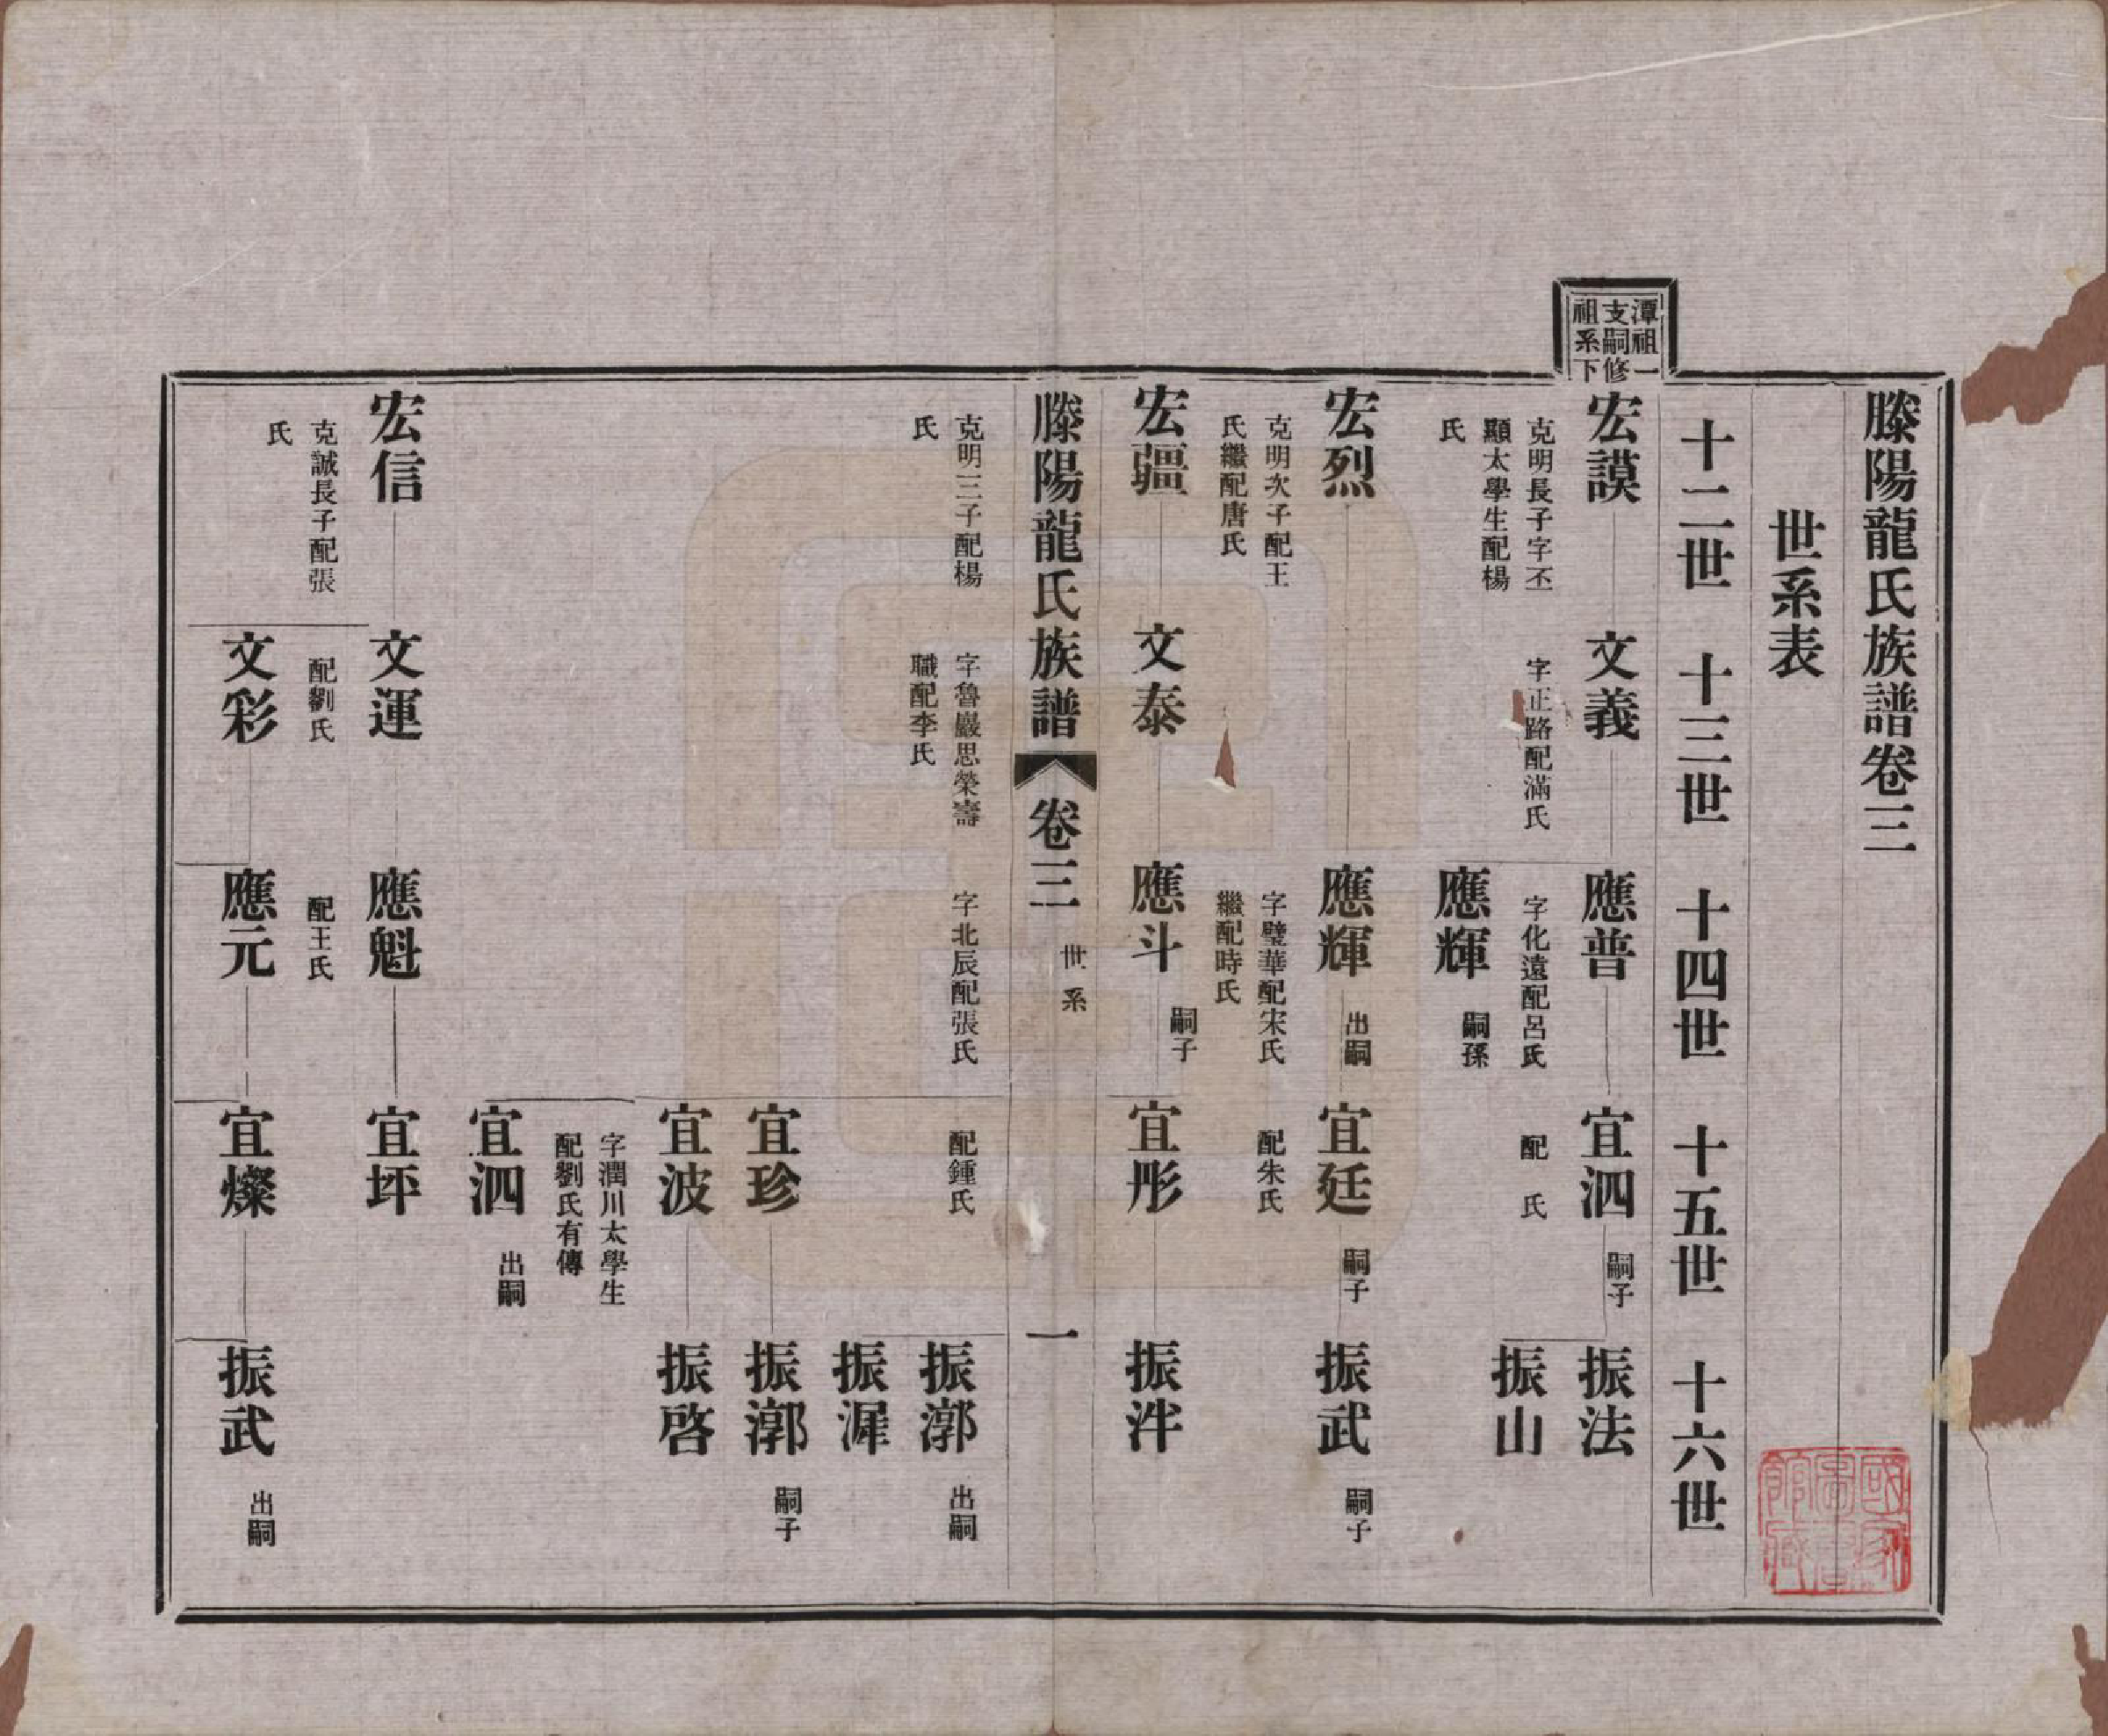 滕陽龍氏族譜卷三
世系表
十二世
十三世
十四世
十五世
十六世
潭祖一
支嗣修
祖系下
宏謨
克明長子字丕
顯太學生配楊
氏
文義
字正路配滿氏
應普
字化遠配呂氏
應輝
嗣孫
宜泗
嗣子
配　氏
振法
振山
宏烈
克明次子配王
氏繼配唐氏
應輝
出嗣
字璧華配宋氏
繼配時氏
宜廷
嗣子
配朱氏
振武
嗣子
宏疆
文泰
應斗
嗣子
宜彤
振泮
滕陽龍氏族譜
卷三
世系
一
克明三子配楊
氏
字魯巖思榮壽
職配李氏
字北辰配張氏
配鍾氏
振漷
出嗣
振漽
宜珍
振漷
嗣子
宜波
字潤川太學生
配劉氏有傳
振啓
宜泗
出嗣
宏信
克誠長子配張
氏
文運
配劉氏
應魁
配王氏
宜坏
文彩
應元
宜燦
振武
出嗣
國家圖書館藏